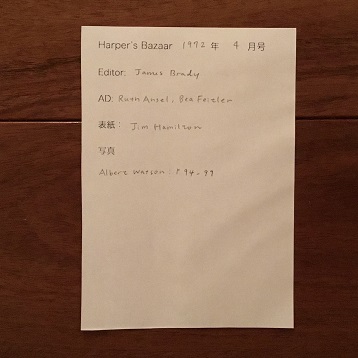 Harper's Bazaar 1972 年 4 月号
Editor: James Brady
AD: Ruth Ansel, Bea Feitler
表紙： Jim Hamilton
写真
Albert Watson : P 94-99